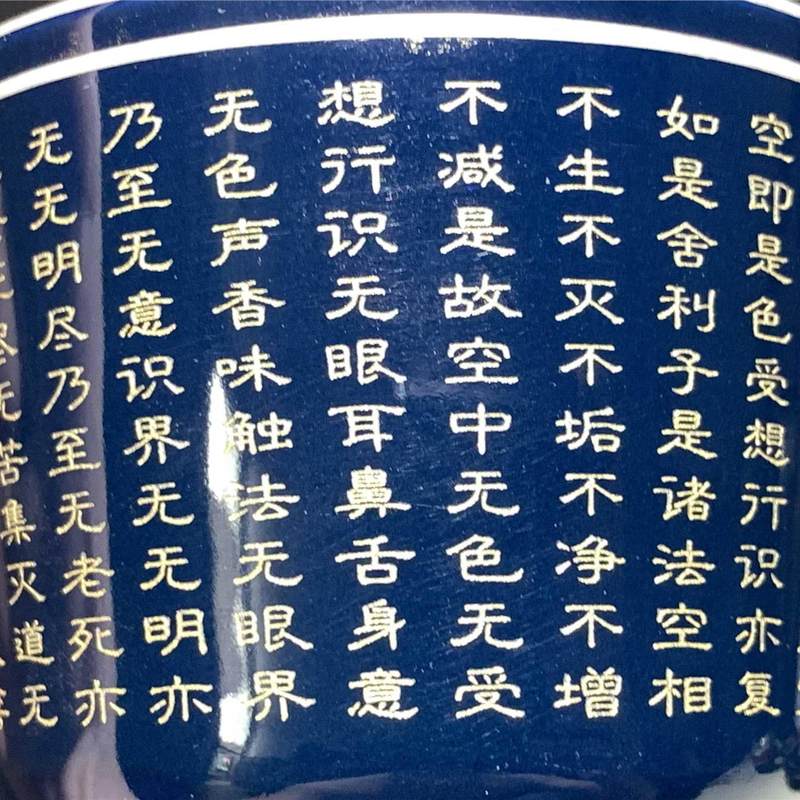 空即是色受想行识亦复
如是舍利子是诸法空相
不生不灭不垢不净不增
不减是故空中无色无受
想行识无眼耳鼻舌身意
无色声香味触法无眼界
乃至无意识界无无明亦
无无明尽乃至无老死亦
苦集灭道无